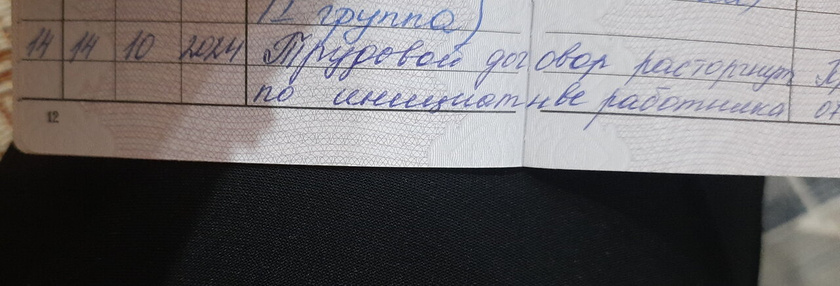 II группа)
14 14 10 2024 Трудовой договор расторгнут
по инициативе работника
12